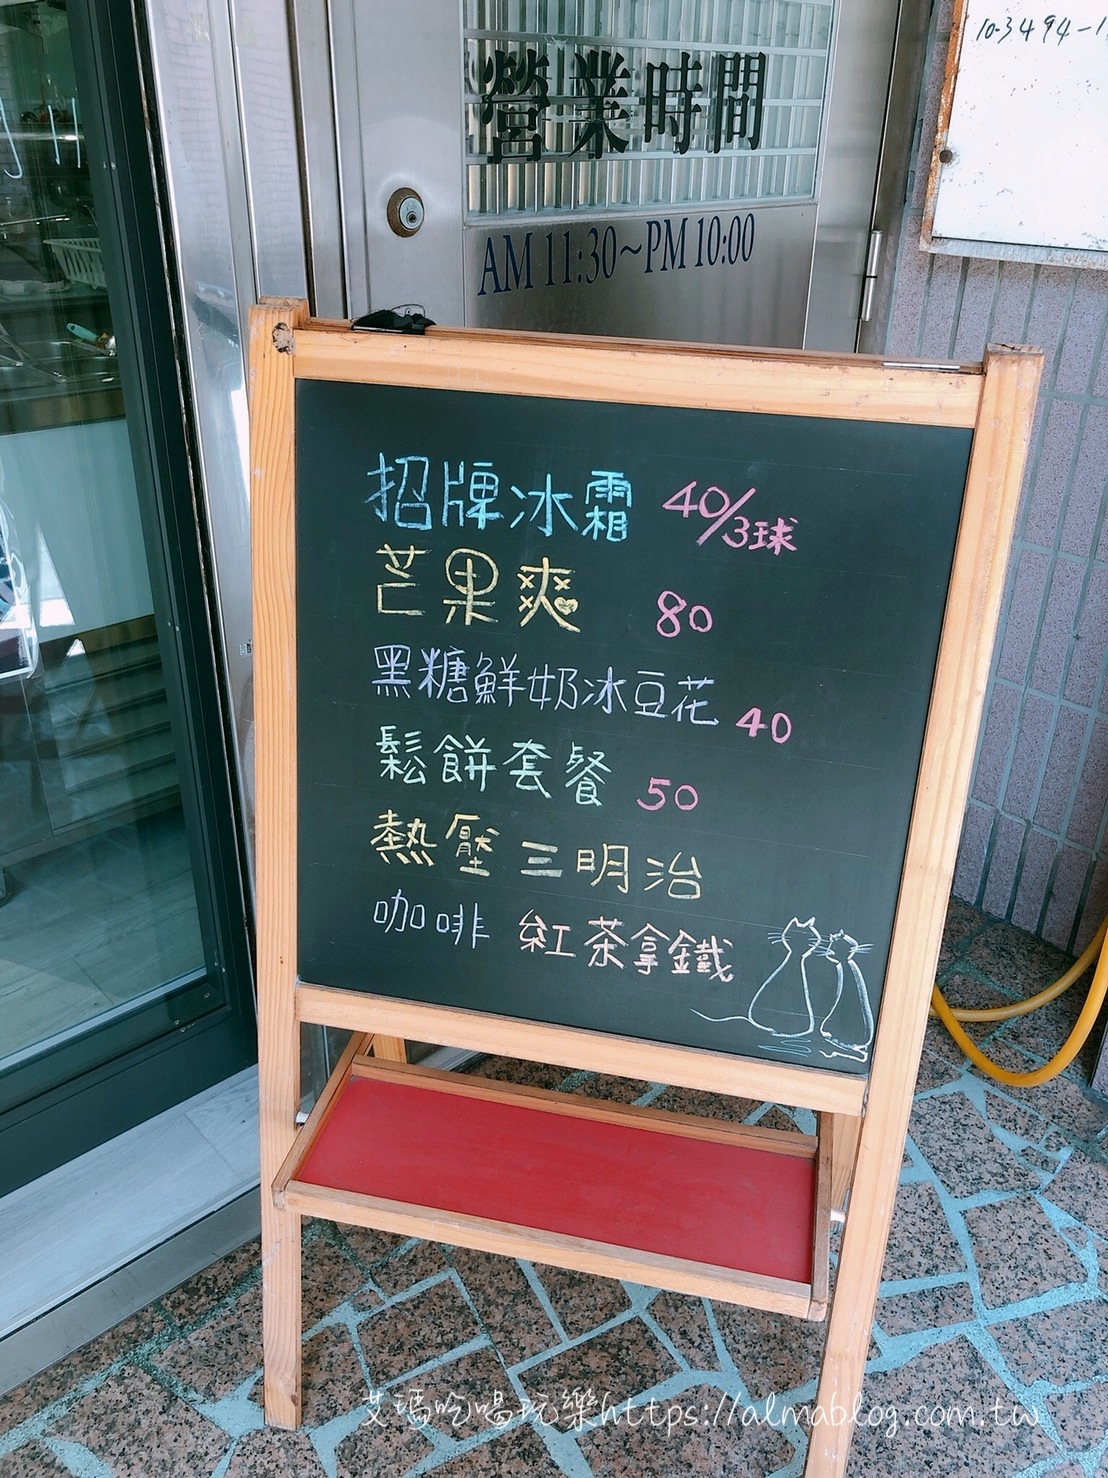 10-3494-1
營業時間
AM 11:30~PM 10:00
招牌冰霜 40/3球
芒果爽 80
黑糖鮮奶冰豆花 40
鬆餅套餐 50
熱壓三明治
咖啡 紅茶拿鐵
艾瑪吃喝玩樂https://almablog.com.tw